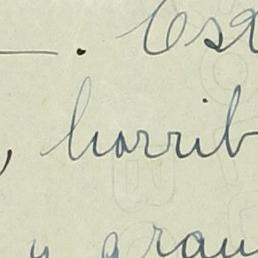 . Est
, horrib
y gran